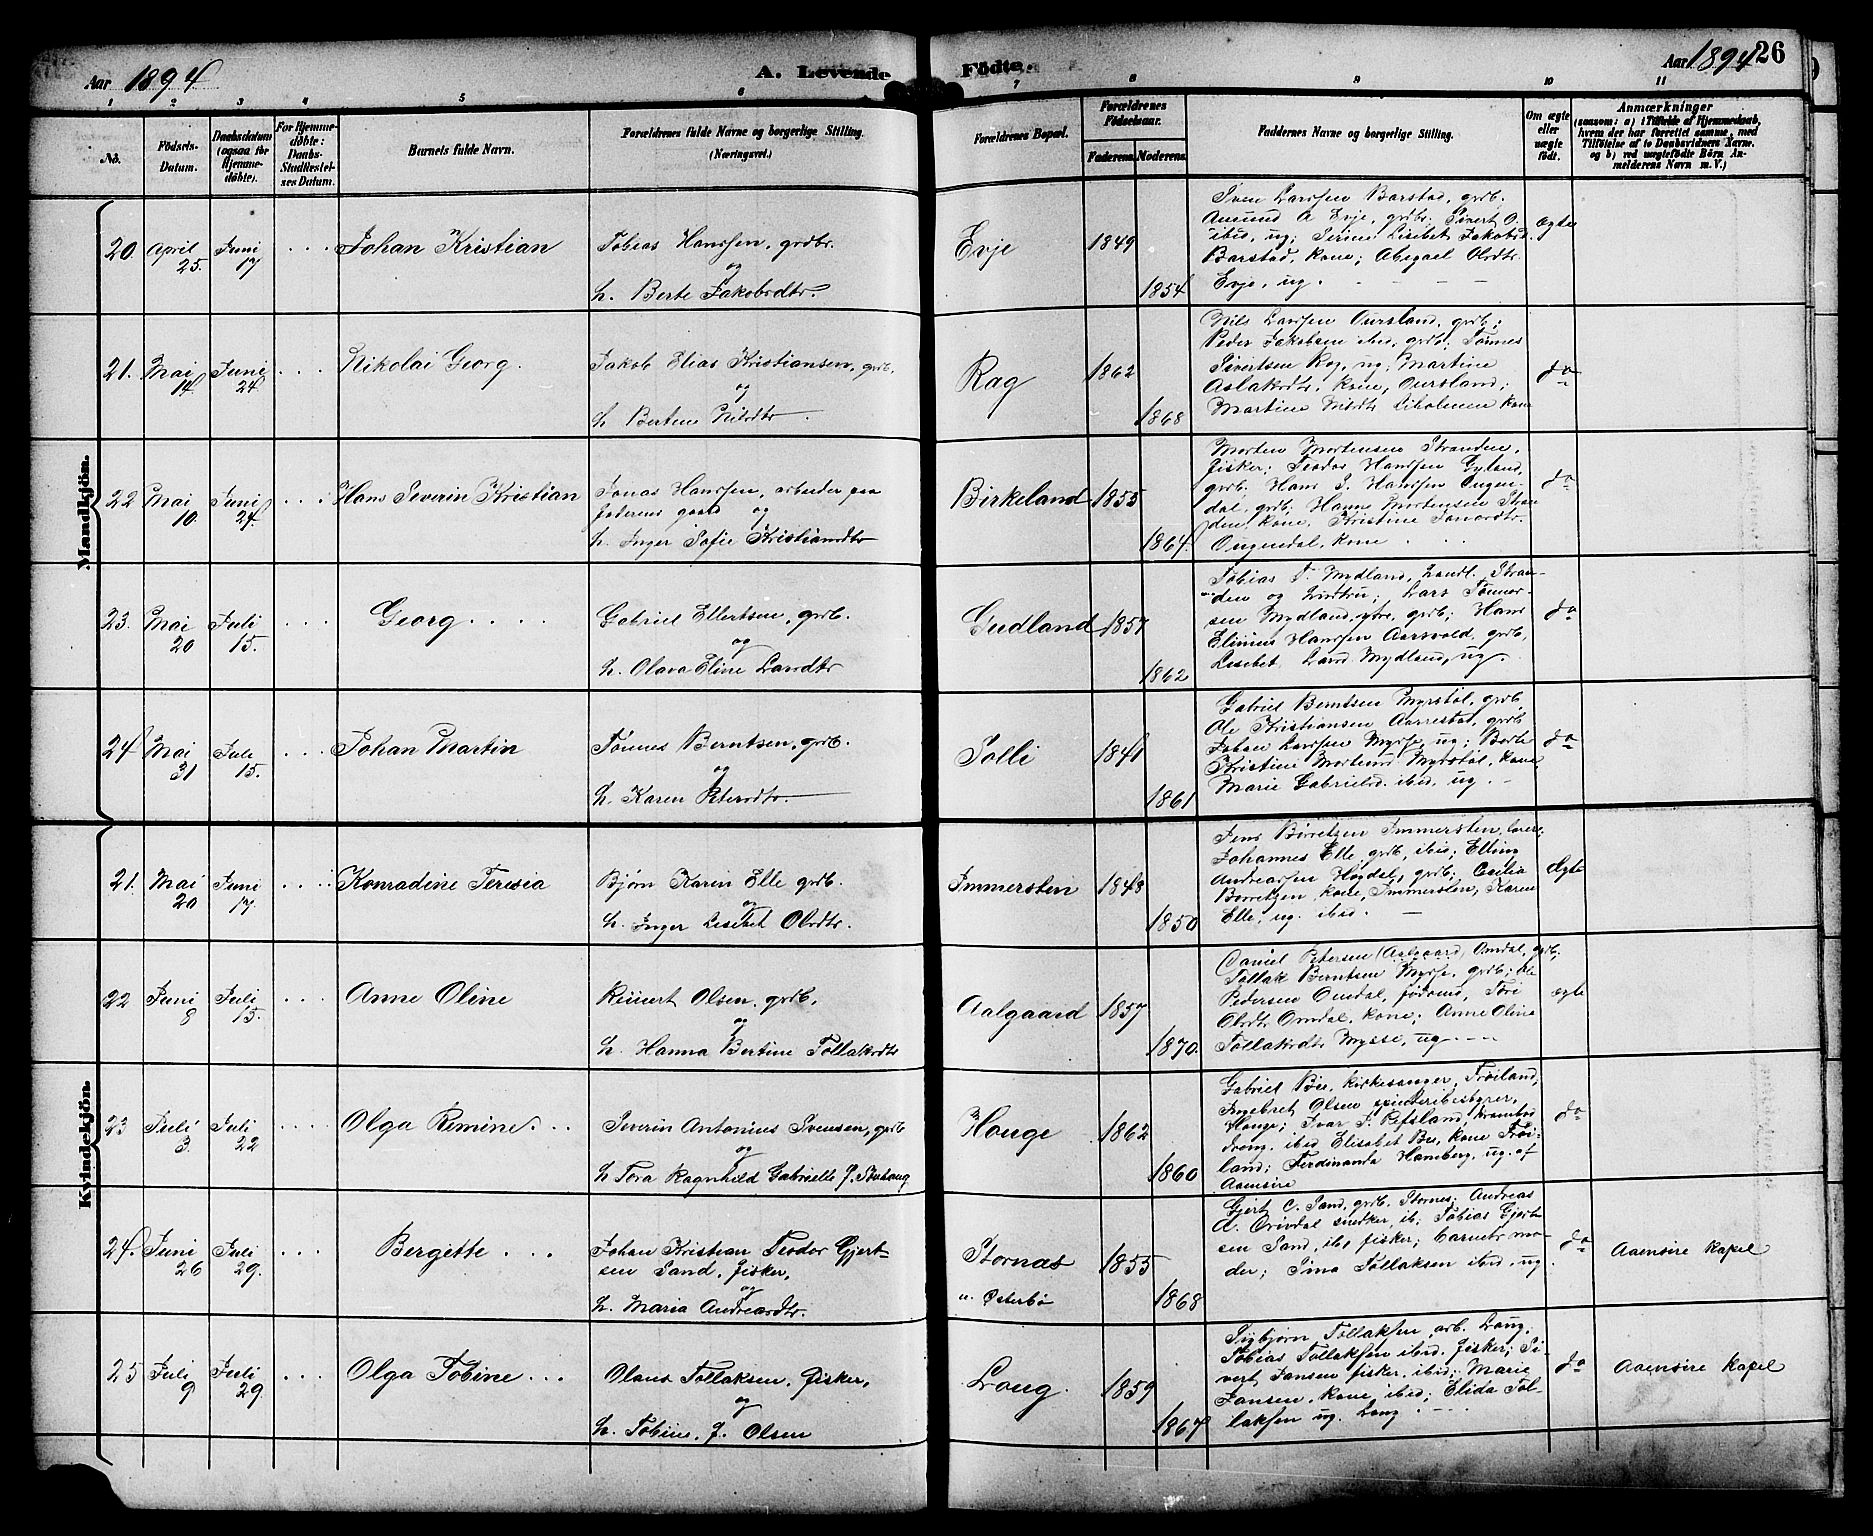 Aar 1894
A. Levende Födte.
Aar 1894
26
1 2 3 4 5 6 7 8 9 10 11
No.
Födsels-
Datum.
Daabsdatum
(ogsaa for
Hjemme-
döbte).
For Hjemme-
döbte:
Daabs-
Stadfæstel-
ses Datum.
Barnets fulde Navn.
Forældrenes fulde Navne og borgerlige Stilling.
(Næringsvei.)
Forældrenes Bopæl.
Forældrenes
Födselsaar.
Faderens. Moderens.
Faddernes Navne og borgerlige Stilling.
Om ægte
eller
uægte
födt.
Anmærkninger
(saasom: a) i Tilfælde af Hjemmedaab,
hvem der har forrettet samme, med
Tilföielse af to Daabsvidners Navne.
og b) ved uægtefödte Börn An-
melderens Navn m. V.)
Mandkjön.
20. April 25. Juni 17 Johan Kristian
Tobias Hanssen, grdbr.
og
h. Berte Jakobsdtr.
Evje 1849 1854
Sven Larssen Barstad, grdb.
Amund A Evje, grdbr; Sivert O.
ibid, ug; Serine Lisebet Jakobsd.
Barstad, kone; Abegael Olsdtr.
Evje, ug.
ægte
21. Mai 14. Juni 24. Nikolai Georg.
Jakob Elias Kristiansen, grdb.
og
h. Bertine Nilsdtr.
Rag 1862 1868
Nils Larssen Oursland, grdb;
Peder Jakobsen ibid, grdb; Tønnes
Sivertsen Rag, ug; Martine
Aslaksdtr, kone, Oursland;
Martine Nilsdtr Liholmen kone
do
22 Mai 10. Juni 24. Hans Severin Kristian
Jonas Hanssen, arbeider paa
faderens gaard og
h. Inger Sofie Kristiansdtr
Birkeland 1855 1864.
Morten Mortensen Stranden,
fisker; Teodor Hanssen Gyland,
grdb. Hans J. Hanssen Ougen-
dal, grdb; Hanne Mortensen Stran-
den, kone, Kristine Jonasdtr.
Ougendal, kone
do
23. Mai 20 Juli 15. Georg
Gabriel Ellertsen, grdb.
og
h. Olava Eline Larsdtr
Gudland 1857 1862
Tobias T. Mydland, Landl. Stran-
den og hustru; Lars Tønnes-
sen Mydland, ytre, grdb; Hans
Elinius Hanssen Aarsvold, grdb,
Lisebet Larsd Mydland, ug.
do
24 Mai 31 Juli 15. Johan Martin
Tönnes Berntsen, grdb.
og
h. Karen Petersdtr.
Solli 1841 1861
Gabriel Berntsen Myrstøl, grdb,
Ole Kristiansen Aarrestad, grdb
Johan Larssen Mysse, ug; Berte
Kristine Mortensd Myrstøl, kone,
Marie Gabrielsd. ibid, ug.
do
Kvindekjön.
21. Mai 20 Juni 17 Konradine Teresia
Bjørn Karin Elle grdb.
og
h. Inger Lisebet Olsdtr.
Immerstein 1848 1850
Jens Børretzen Immersten, lærer;
Johannes Elle, grdb, ibid; Elling
Andreassen Høgdal, grdb; Cecilia
Børretzen, kone, Immersten, Karen
Elle, ug. ibid.
Ægte
22 Juni 8 Juli 15. Anne Oline
Reinert Olsen, grdb,
og
h. Hanna Bertine Tollaksdtr
Aalgaard 1857 1870.
Daniel Petersen (Aalgaard) Omdal, grdb,
Tollak Berntsen Mysse, grdb; Ole
Pedersen Omdal, føderaad, Tori
Olsdtr Omdal, kone; Anne Oline
Tollaksdtr Mysse, ug
ægte
23 Juli 3. Juli 22 Olga Remine.
Severin Antonius Svensen, grdb
og
h Tora Ragnhild Gabrielle f. Stuhaug
Houge 1862 1860
Gabriel Bu, kirkesanger, Trøiland,
Ingebret Olsen spinderibestyrer,
Houge; Ivar S. Refsland, krambod
dreng, ibid Elisabet Bu, kone Trøi-
land; Ferdinanda Hamberg, ug. af
Aaensire
do
24. Juni 26 Juli 29. Bergitte
Johan Kristian Teodor Gjert-
sen Sand, fisker,
og
h. Maria Andreasdtr.
Stornas
u. Østerbø 1855 1868
Gjert C. Sand, grdb. Stornes; Andreas
A. Drivdal snedker, ib; Tobias Gjert-
sen Sand, ibd fisker; barnets mo-
der; Sina Tollaksen ibid, ug.
do
Aaensire Kapel
25 Juli 9 Juli 29. Olga Tobine
Olaus Tollaksen, fisker,
og
h. Tobine, f. Olsen
Loug. 1859 1867
Sigbjørn Tollaksen, arb. Loug,
Tobias Tollaksen ibid. fisker; Si-
vert Jansen fisker, ibid; Marie
Jansen, kone, ibid; Elida Tol-
laksen ug. Loug
do
Aaensire Kapel